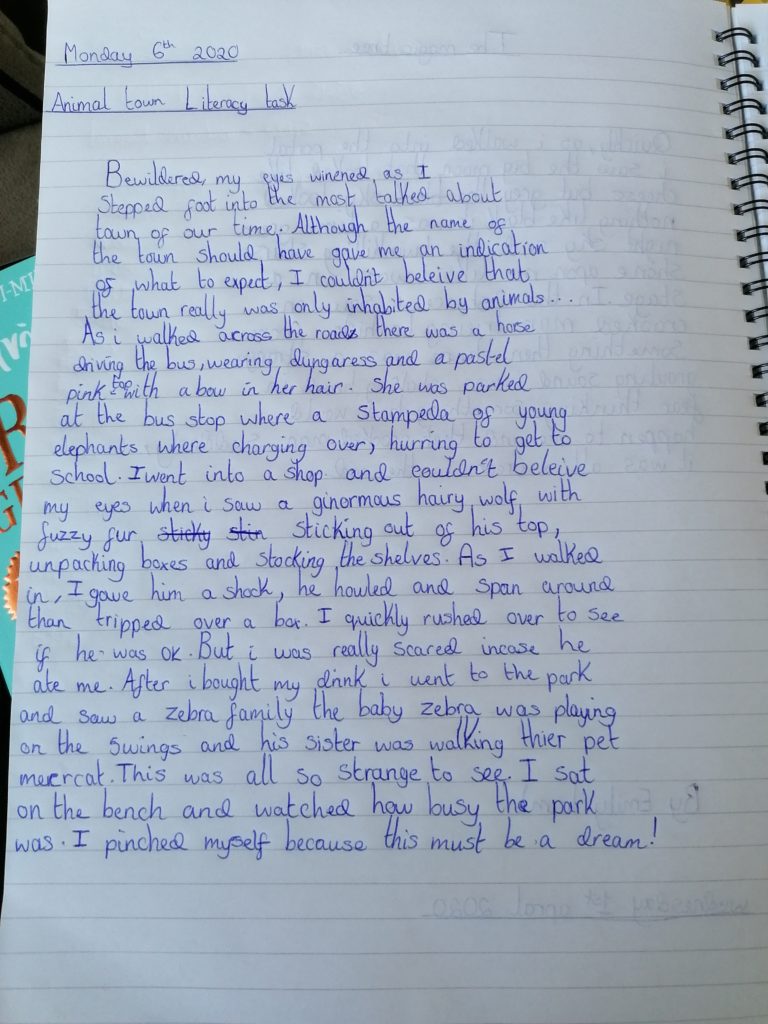 Monday 6th 2020
Animal town Literacy task
Bewildered, my eyes winened as I
Stepped foot into the most talked about
town of our time. Although the name of
the town should have gave me an indication
of what to expect, I couldn't beleive that
the town really was only inhabited by animals...
As i walked across the roads there was a horse
driving the bus, wearing dungaress and a pastel
pink top with a bow in her hair. She was parked
at the bus stop where a stampeda of young
elephants where charging over, hurring to get to
school. I went into a shop and couldn't beleive
my eyes when i saw a ginormous hairy wolf with
fuzzy fur sticky stin sticking out of his top,
unpacking boxes and stocking the shelves. As I walked
in, I gave him a shock, he howled and span around
than tripped over a box. I quickly rushed over to see
if he was ok. But i was really scared incase he
ate me. After i bought my drink i went to the park
and saw a zebra family the baby zebra was playing
on the swings and his sister was walking thier pet
meercat. This was all so strange to see. I sat
on the bench and watched how busy the park
was. I pinched myself because this must be a dream!